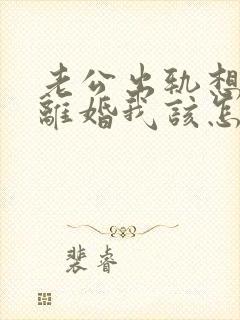 老公出轨想
離婚我該怎
裴睿